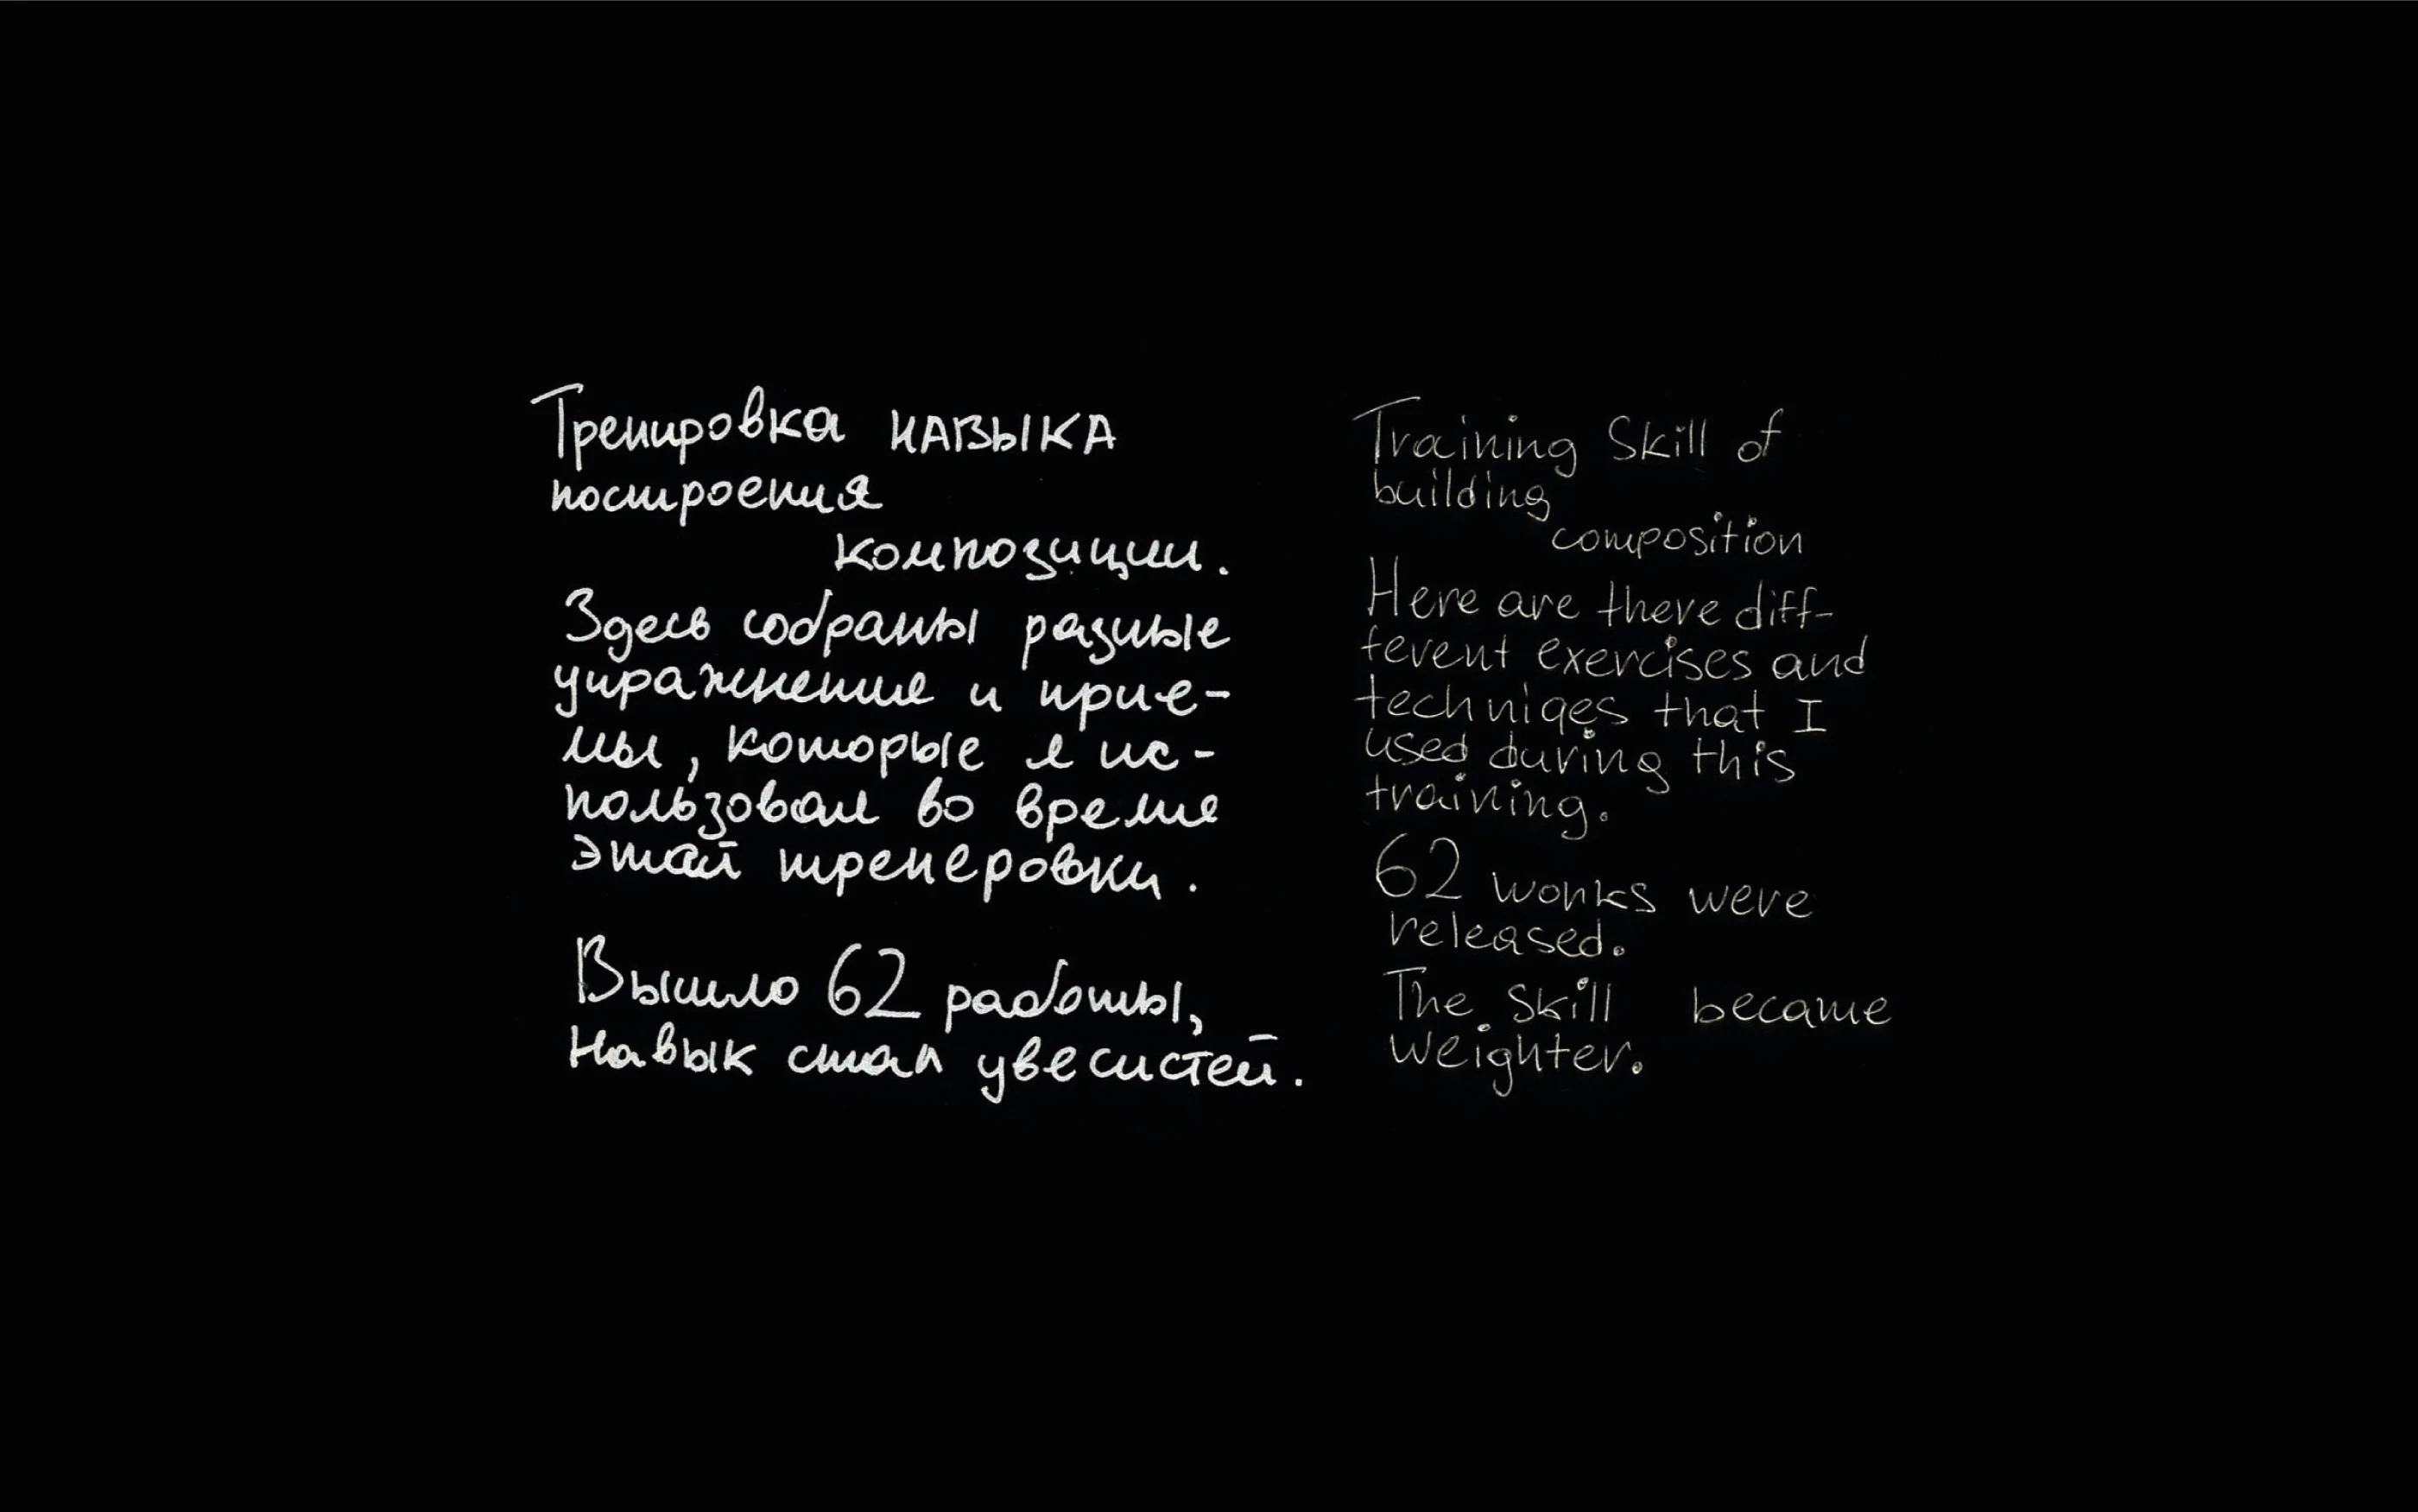 Тренировка НАВЫКА
построения
композиции.
Здесь собраны разные
упражнение и прие-
мы, которые я ис-
пользовал во время
этай тренеровки.
Вышло 62 работы,
Навык стал увесистей.
Training Skill of
building
composition
Here are there diff-
ferent exercises and
techniqes that I
used during this
training.
62 works were
released.
The skill became
weighter.